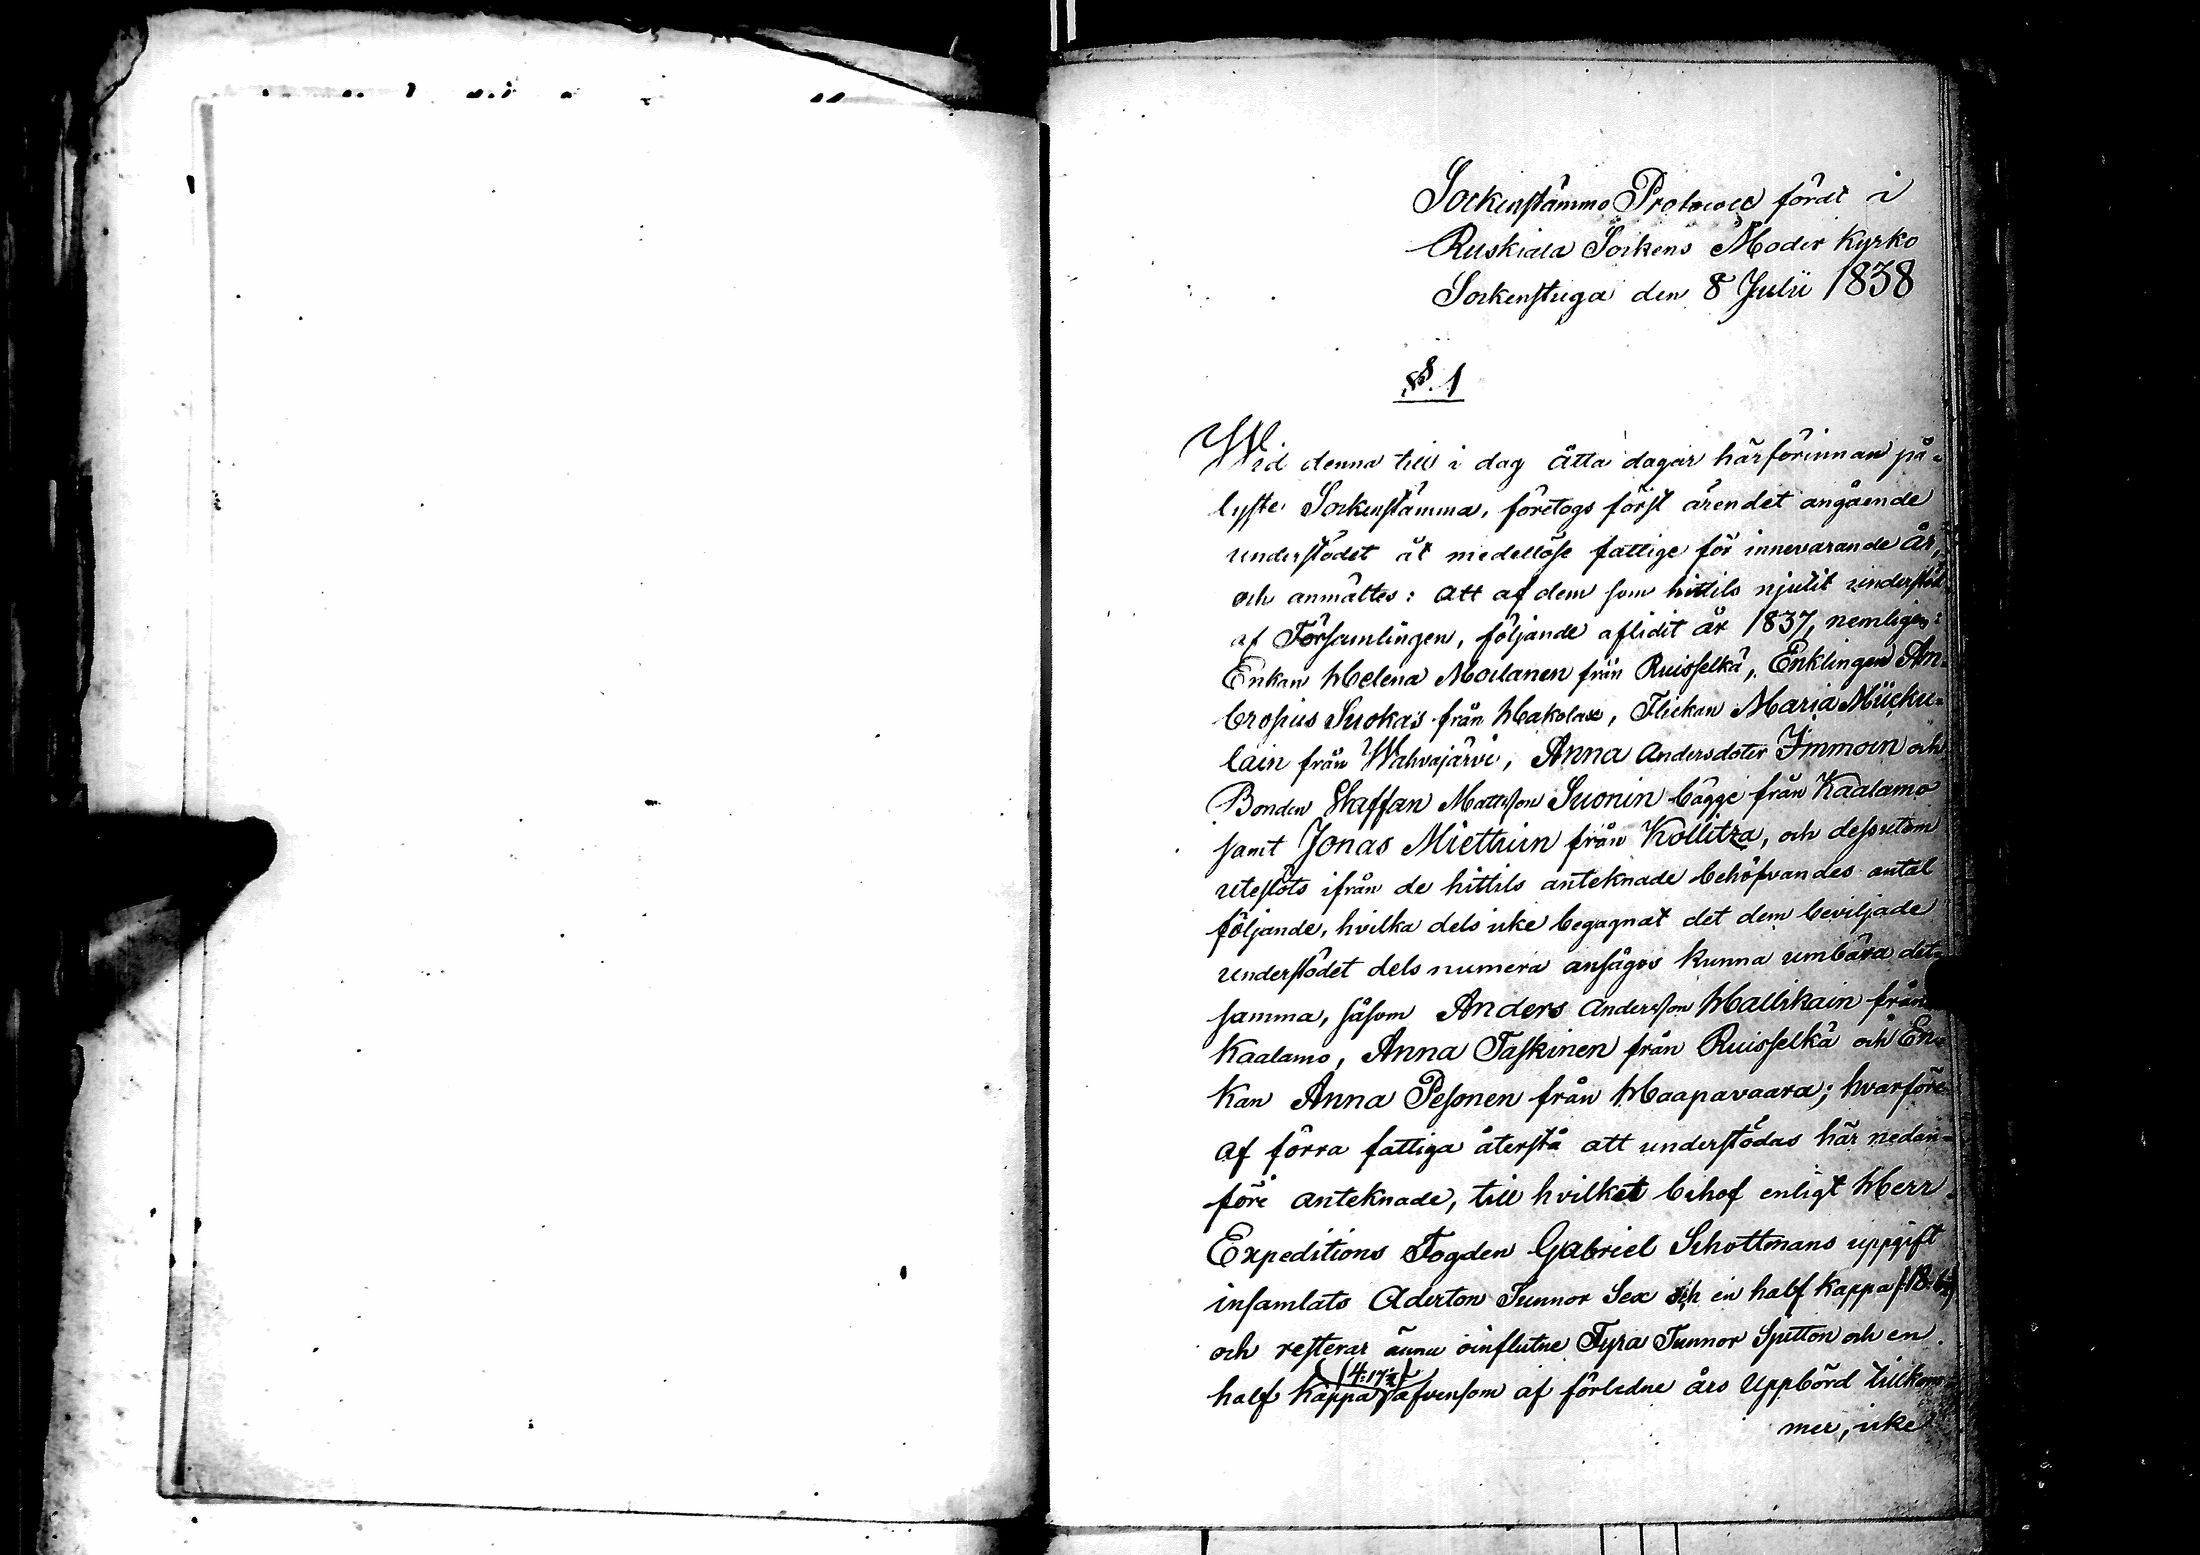 Sockenstämmo Protocoll fördt i
Ruskiala Sockens Moder Kyrko
Sockenstuga den 8 Julii 1838
§. 1
Wid denna till i dag åtta dagar härförinnan på-
lyste Sockenstämma, företogs först ärendet angående
understödet åt medellöse fattige för innevarande År,
och anmältes: att af dem som hittils njutit understöd
af Församlingen, följande aflidit år 1837, nemligen:
Enkan Helena Moilanen från Ruisselkä, Enklingen Am-
brosius Suokas från Hakolax, Flickan Maria Müchü-
läin från Wahvajärvi, Anna Andersdoter Immoin och
Bonden Staffan Mattsson Suonin bägge från Kaalamo
samt Jonas Miettuin från Kollitza, och dessutom
uteslöts ifrån de hittils anteknade behöfvandes antal
följande, hvilka dels icke begagnat det dem beviljade
understödet dels numera ansågos kunna umbära det-
samma, såsom Anders Andersson Hallikain från
Kaalamo, Anna Taskinen från Ruisselkä och En-
kan Anna Pesonen från Haapavaara; hvarföre
af förra fattiga återstå att understödas här nedan-
före anteknade, till hvilket behof enligt Herr
Expeditions Fogden Gabriel Schottmans uppgift
insamlats Aderton Tunnor Sex och en half kappa /:18: 6½
och resterar ännu oinflutne Fyra Tunnor Sjutton och en
half kappa (4:17½) äfvensom af förledne års Uppbörd tillkom-
mer, icke